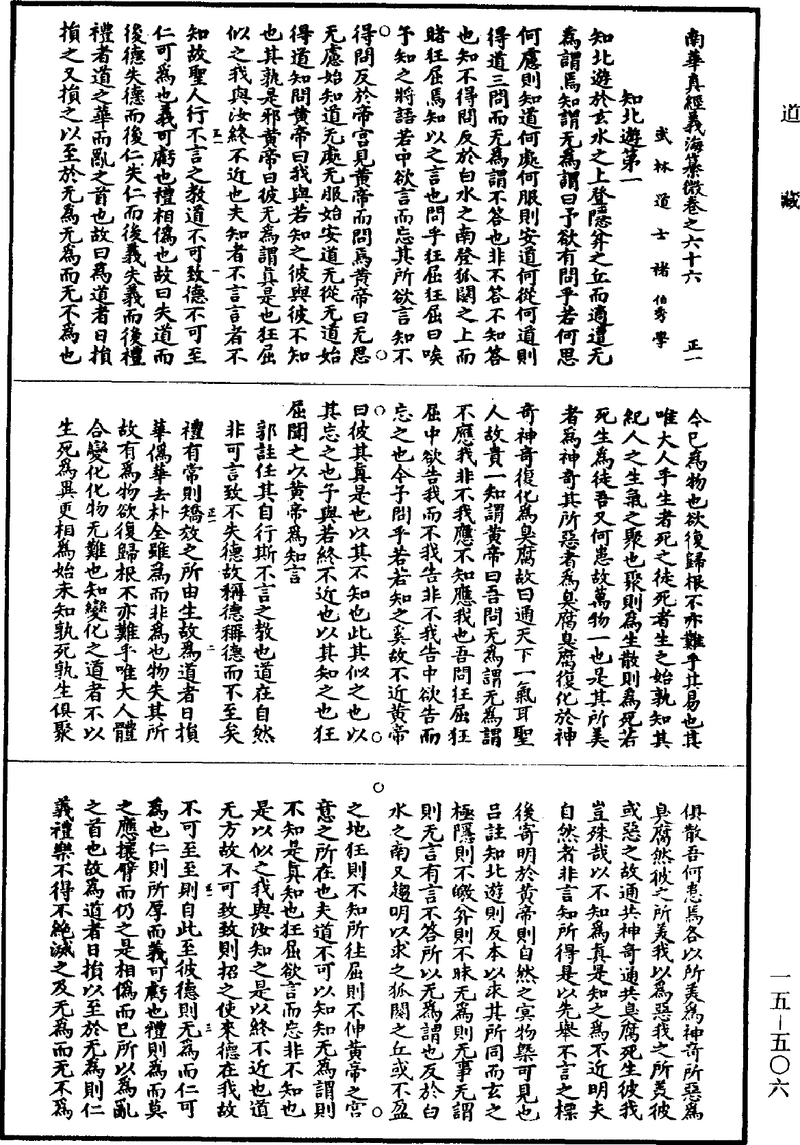 道藏
南華真經義海纂微卷之六十六 正一
武林道士褚伯秀學
知北遊第一
知北遊於玄水之上登隱弅之丘而適遭无
為謂焉知謂无為謂曰予欲有問乎若何思
何慮則知道何處何服則安道何從何道則
得道三問而无為謂不答也非不答不知答
也知不得問反於白水之南登狐闋之上而
睹狂屈焉知以之言也問乎狂屈狂屈曰唉
予知之將語若中欲言而忘其所欲言知不
得問反於帝宮見黃帝而問焉黃帝曰无思
无慮始知道无處无服始安道无從无道始
得道知問黃帝曰我與若知之彼與彼不知
也其孰是邪黃帝曰彼无為謂真是也狂屈
似之我與汝終不近也夫知者不言言者不
知故聖人行不言之教道不可致德不可至
仁可為也義可虧也禮相偽也故曰失道而
後德失德而後仁失仁而後義失義而後禮
禮者道之華而亂之首也故曰為道者日損
損之又損之以至於无為无為而无不為也
今已為物也欲復歸根不亦難乎其易也其
唯大人乎生者死之徒死者生之始孰知其
紀人之生氣之聚也聚則為生散則為死若
死生為徒吾又何患故萬物一也是其所美
者為神奇其所惡者為臭腐臭腐復化於神
奇神奇復化為臭腐故曰通天下一氣耳聖
人故貴一知謂黃帝曰吾問无為謂无為謂
不應我非不我應不知應我也吾問狂屈狂
屈中欲告我而不我告非不我告中欲告而
忘之也今予問乎若若知之奚故不近黃帝
曰彼其真是也以其不知也此其似之也以
其忘之也予與若終不近也以其知之也狂
屈聞之以黃帝為知言
郭註任其自行斯不言之教也道在自然
非可言致不失德故稱德稱德而不至矣
禮有常則矯效之所由生故為道者日損
華偽華去朴全雖為而非為也物失其所
故有為物欲復歸根不亦難乎唯大人體
合變化化物无難也知變化之道者不以
生死為異更相為始未知孰死孰生俱聚
俱散吾何患焉各以所美為神奇所惡為
臭腐然彼之所美我以為惡我之所美彼
或惡之故通共神奇通共臭腐死生彼我
豈殊哉以不知為真是知之為不近明夫
自然者非言知所得是以先舉不言之標
後寄明於黃帝則自然之冥物槩可見也
呂註知北遊則反本以求其所同而玄之
極隱則不皦弅則不昧无為則无事无謂
則无言有言不答所以无為謂也反於白
水之南又趨明以求之狐闋之丘或不盈
之地狂則不知所往屈則不伸黃帝之宮
意之所在也夫道不可以知知无為謂則
不知是真知也狂屈欲言而忘非不知也
是以似之我與汝知之是以終不近也道
无方故不可致致則招之使來德在我故
不可至至則自此至彼德則无為而仁可
為也仁則所厚而義可虧也禮則為而莫
之應攘臂而仍之是相偽而已所以為亂
之首也故為道者日損以至於无為則仁
義禮樂不得不絕滅之及无為而无不為
一五—五〇六